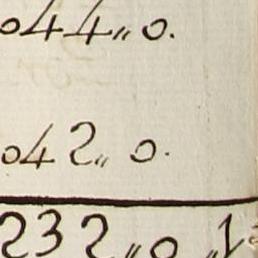 044,, 0.
042,, 0.
232,, 0,, 1